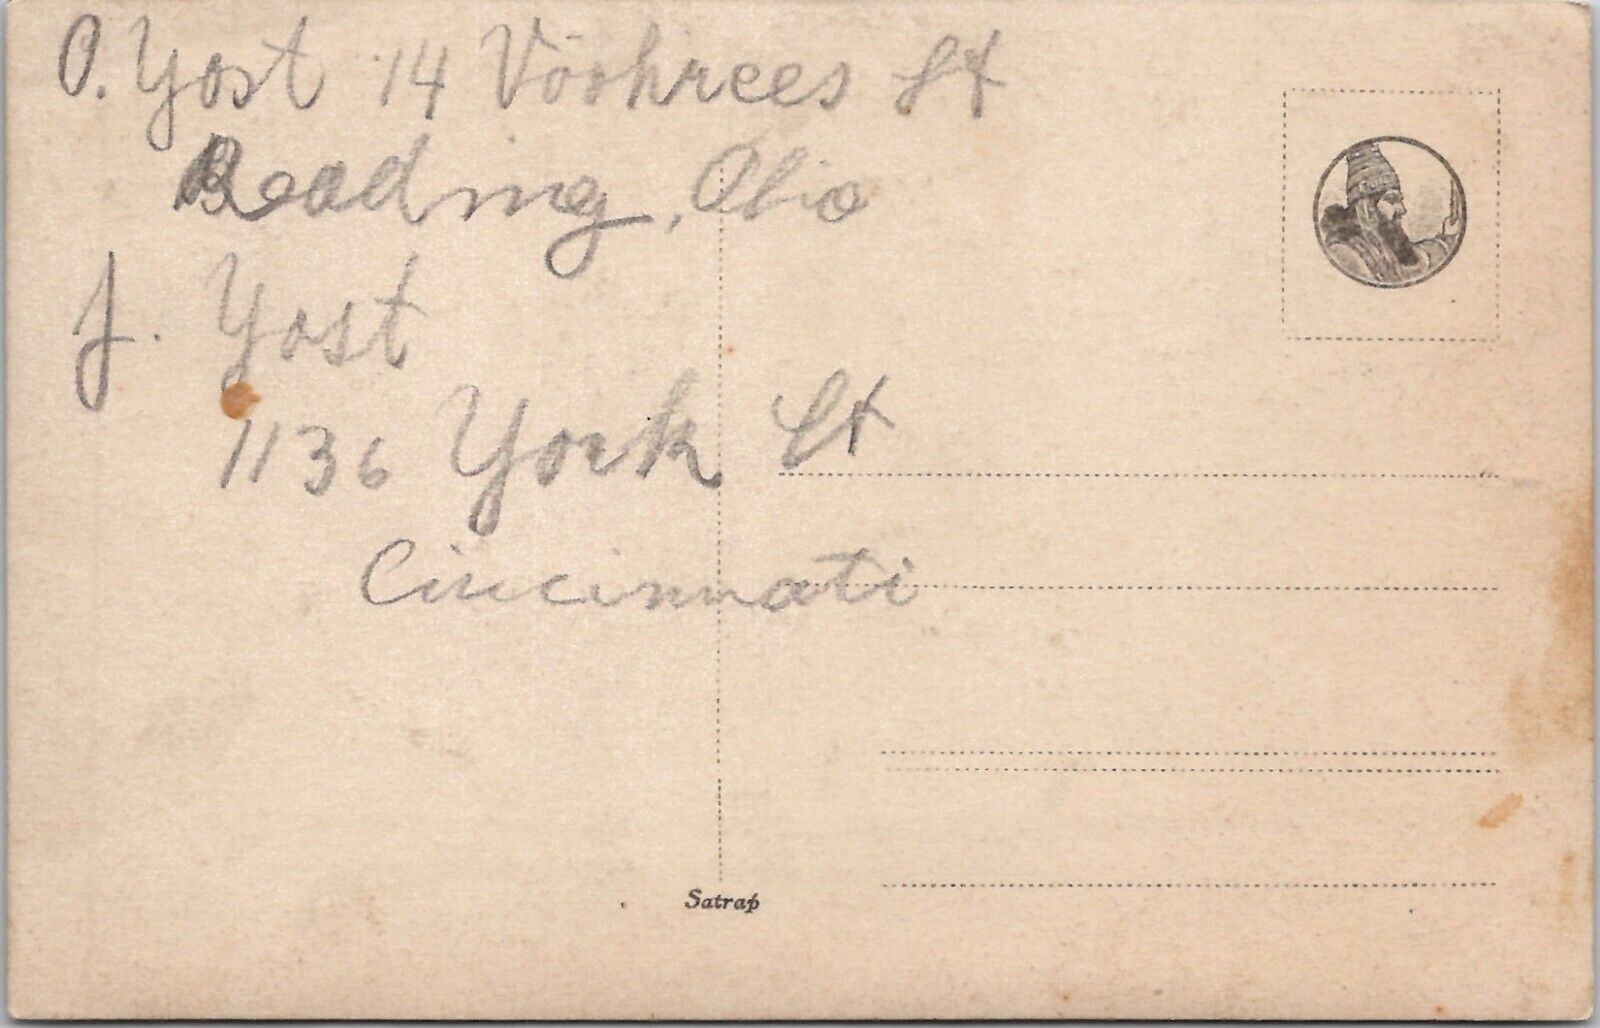 O. Yost 14 Vöohrees St
Reading, Ohio
J. Yost
1136 York St
Cincinnati
Satrap